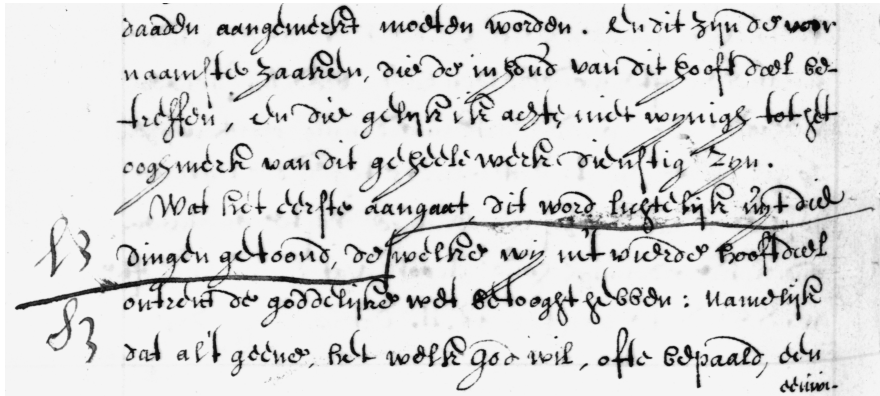 daaden aangemerkt moeten worden. En dit zijn de voor
naamste zaaken, die de inhoud van dit hooft deel be-
treffen, en die gelijk ik achte, niet wijnigh tot het
ooghmerk van dit geheele werk dienstig zijn.
Wat het eerste aangaat, dit word lichtelijk uijt die
dingen getoond, de welke wij in't vierde hooftdeel
ontrent de goddelijke wet betooght hebben: namelijk
dat al't geene, het welk god wil, ofte bepaald, een
eeuwi-